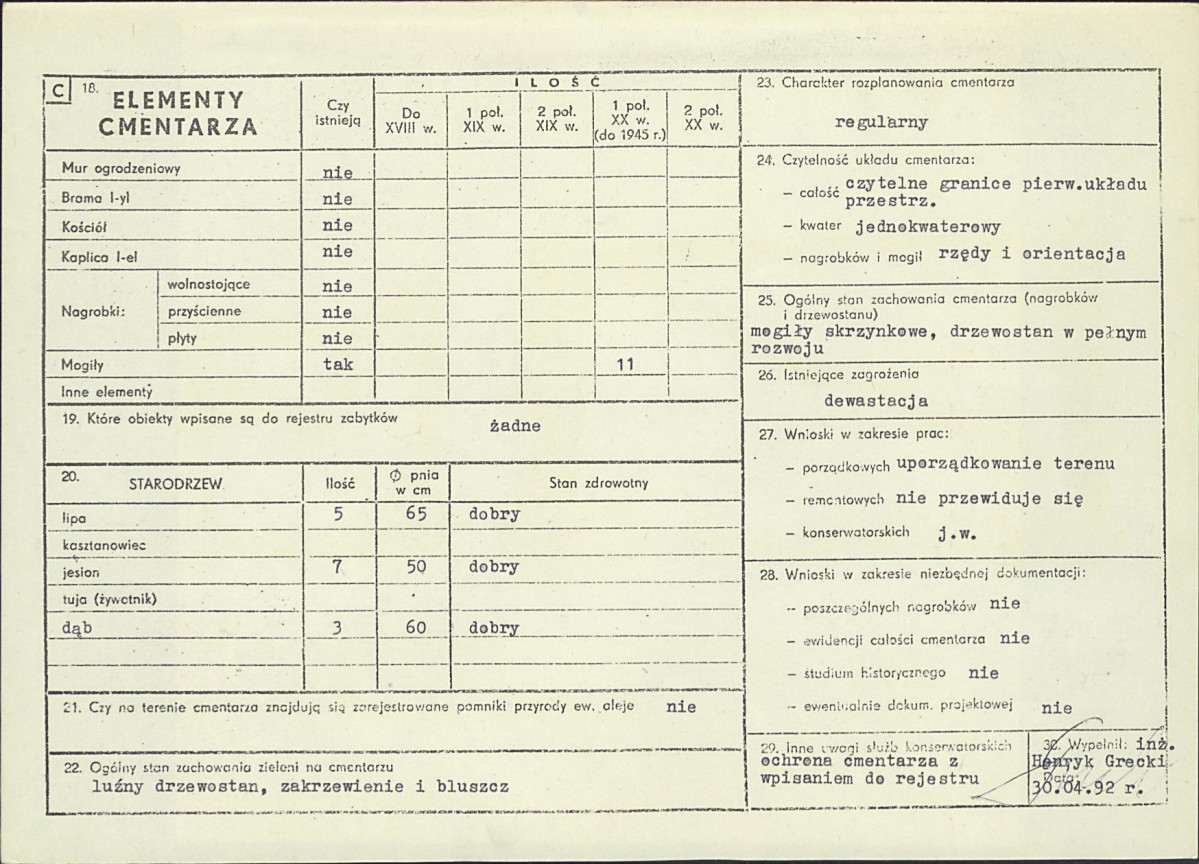 C 18. ELEMENTY CMENTARZA
Czy istnieją
ILOŚĆ
Do XVIII w.
1 poł. XIX w.
2 poł. XIX w.
1 poł. XX w. (do 1945 r.)
2 poł. XX w.
Mur ogrodzeniowy nie
Brama I-yl nie
Kościół nie
Kaplica I-el nie
Nagrobki: wolnostojące nie
przyścienne nie
płyty nie
Mogiły tak 11
Inne elementy
19. Które obiekty wpisane są do rejestru zabytków żadne
20. STARODRZEW Ilość Ø pnia w cm Stan zdrowotny
lipa 5 65 dobry
kasztanowiec
jesion 7 50 dobry
tuja (żywotnik)
dąb 3 60 dobry
21. Czy na terenie cmentarza znajdują się zarejestrowane pomniki przyrody ew. aleje nie
22. Ogólny stan zachowania zieleni na cmentarzu
luźny drzewostan, zakrzewienie i bluszcz
23. Charakter rozplanowania cmentarza
regularny
24. Czytelność układu cmentarza:
– całość czytelne granice pierw.układu
przestrz.
– kwater jednokwaterowy
– nagrobków i mogił rzędy i orientacja
25. Ogólny stan zachowania cmentarza (nagrobków
i drzewostanu)
mogiły skrzynkowe, drzewostan w pełnym
rozwoju
26. Istniejące zagrożenia
dewastacja
27. Wnioski w zakresie prac:
– porządkowych uporządkowanie terenu
– remontowych nie przewiduje się
– konserwatorskich j.w.
28. Wnioski w zakresie niezbędnej dokumentacji:
– poszczególnych nagrobków nie
– ewidencji całości cmentarza nie
– studium historycznego nie
– ewentualnie dokum. projektowej nie
29. Inne uwagi służb konserwatorskich
ochrona cmentarza z
wpisaniem do rejestru
30. Wypełnił: inż.
Henryk Grecki
Data:
30.04.92 r.